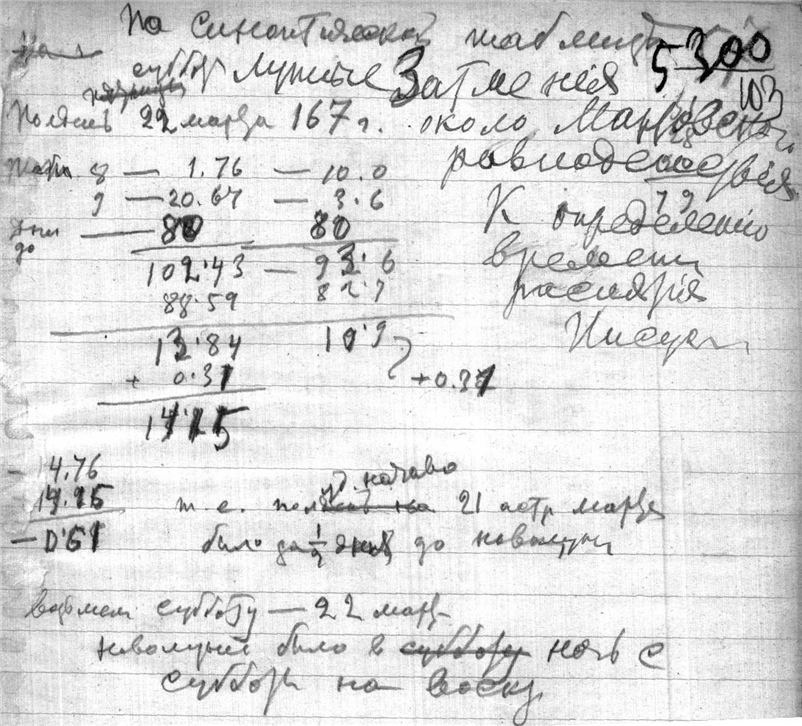 По синоптической таблице
5300
103
суббот Лунные Затмения
22 марта 167 г. около Мартовского
равноденствия
8 — 1.76 — 10.0
9 — 20.67 — 3.6
К определению
Дни до — 80 80
времени
102.43 — 93.6
распятия
88.59 82.7
Иисуса
13.84 10.9
+ 0.31 +0.31
14.15
14.76
начало
14.15 т. е. 21 астр марта
— 0.61 было за 1/2 дня до новолуния
возьмем субботу — 22 март
новолуние было в субботу ночь с
субботы на воскр